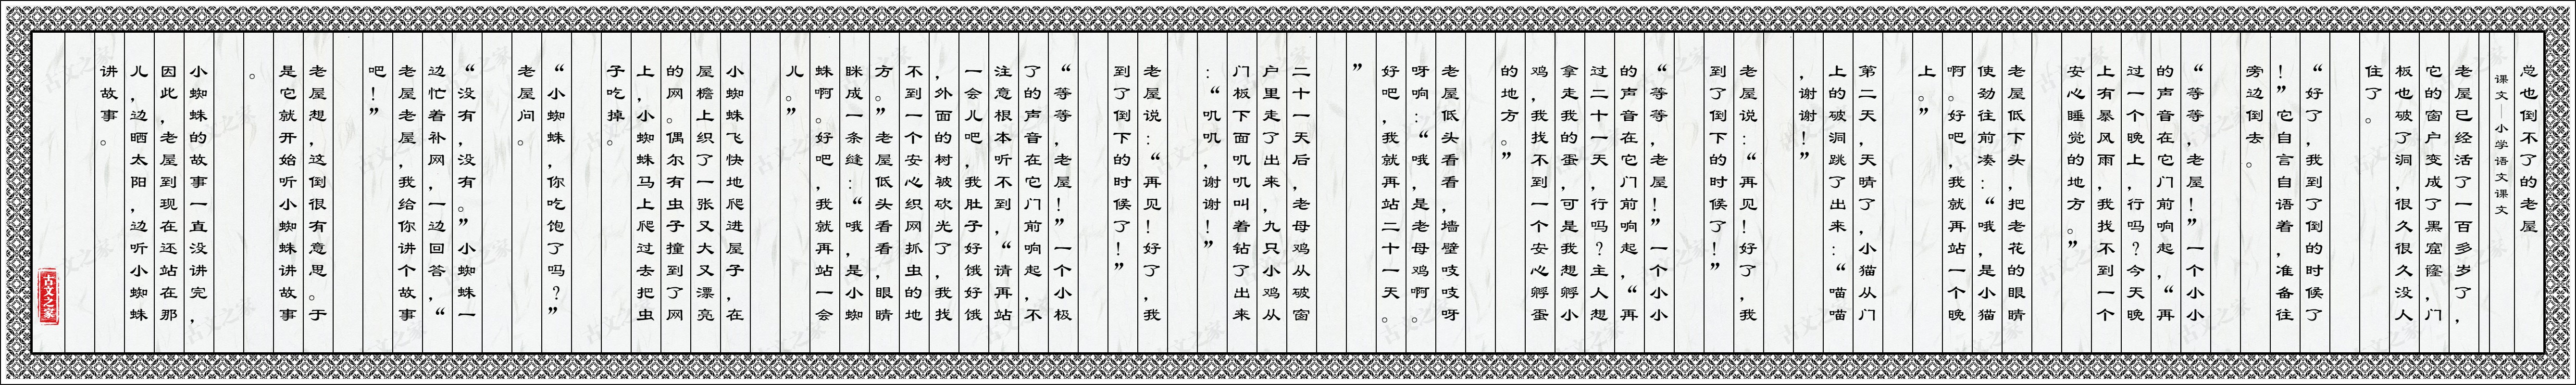 总也倒不了的老屋
课文——小学语文课文
老屋已经活了一百多岁了，
它的窗户变成了黑窟窿，门
板也破了洞，很久很久没人
住了。
“好了，我到了倒的时候了
！”它自言自语着，准备往
旁边倒去。
“等等，老屋！”一个小小
的声音在它门前响起，“再
过一个晚上，行吗？今天晚
上有暴风雨，我找不到一个
安心睡觉的地方。”
老屋低下头，把老花的眼睛
使劲往前凑：“哦，是小猫
啊。好吧，我就再站一个晚
上。”
第二天，天晴了，小猫从门
上的破洞跳了出来：“喵喵
，谢谢！”
老屋说：“再见！好了，我
到了倒下的时候了！”
“等等，老屋！”一个小小
的声音在它门前响起，“再
过二十一天，行吗？主人想
拿走我的蛋，可是我想孵小
鸡，我找不到一个安心孵蛋
的地方。”
老屋低头看看，墙壁吱吱呀
呀响：“哦，是老母鸡啊。
好吧，我就再站二十一天。
”
二十一天后，老母鸡从破窗
户里走了出来，九只小鸡从
门板下面叽叽叫着钻了出来
：“叽叽，谢谢！”
老屋说：“再见！好了，我
到了倒下的时候了！”
“等等，老屋！”一个小极
了的声音在它门前响起，不
注意根本听不到，“请再站
一会儿吧，我肚子好饿好饿
，外面的树被砍光了，我找
不到一个安心织网抓虫的地
方。”老屋低头看看，眼睛
眯成一条缝：“哦，是小蜘
蛛啊。好吧，我就再站一会
儿。”
小蜘蛛飞快地爬进屋子，在
屋檐上织了一张又大又漂亮
的网。偶尔有虫子撞到了网
上，小蜘蛛马上爬过去把虫
子吃掉。
“小蜘蛛，你吃饱了吗？”
老屋问。
“没有，没有。”小蜘蛛一
边忙着补网，一边回答，“
老屋老屋，我给你讲个故事
吧！”
老屋想，这倒很有意思。于
是它就开始听小蜘蛛讲故事
。
小蜘蛛的故事一直没讲完，
因此，老屋到现在还站在那
儿，边晒太阳，边听小蜘蛛
讲故事。
古文之家